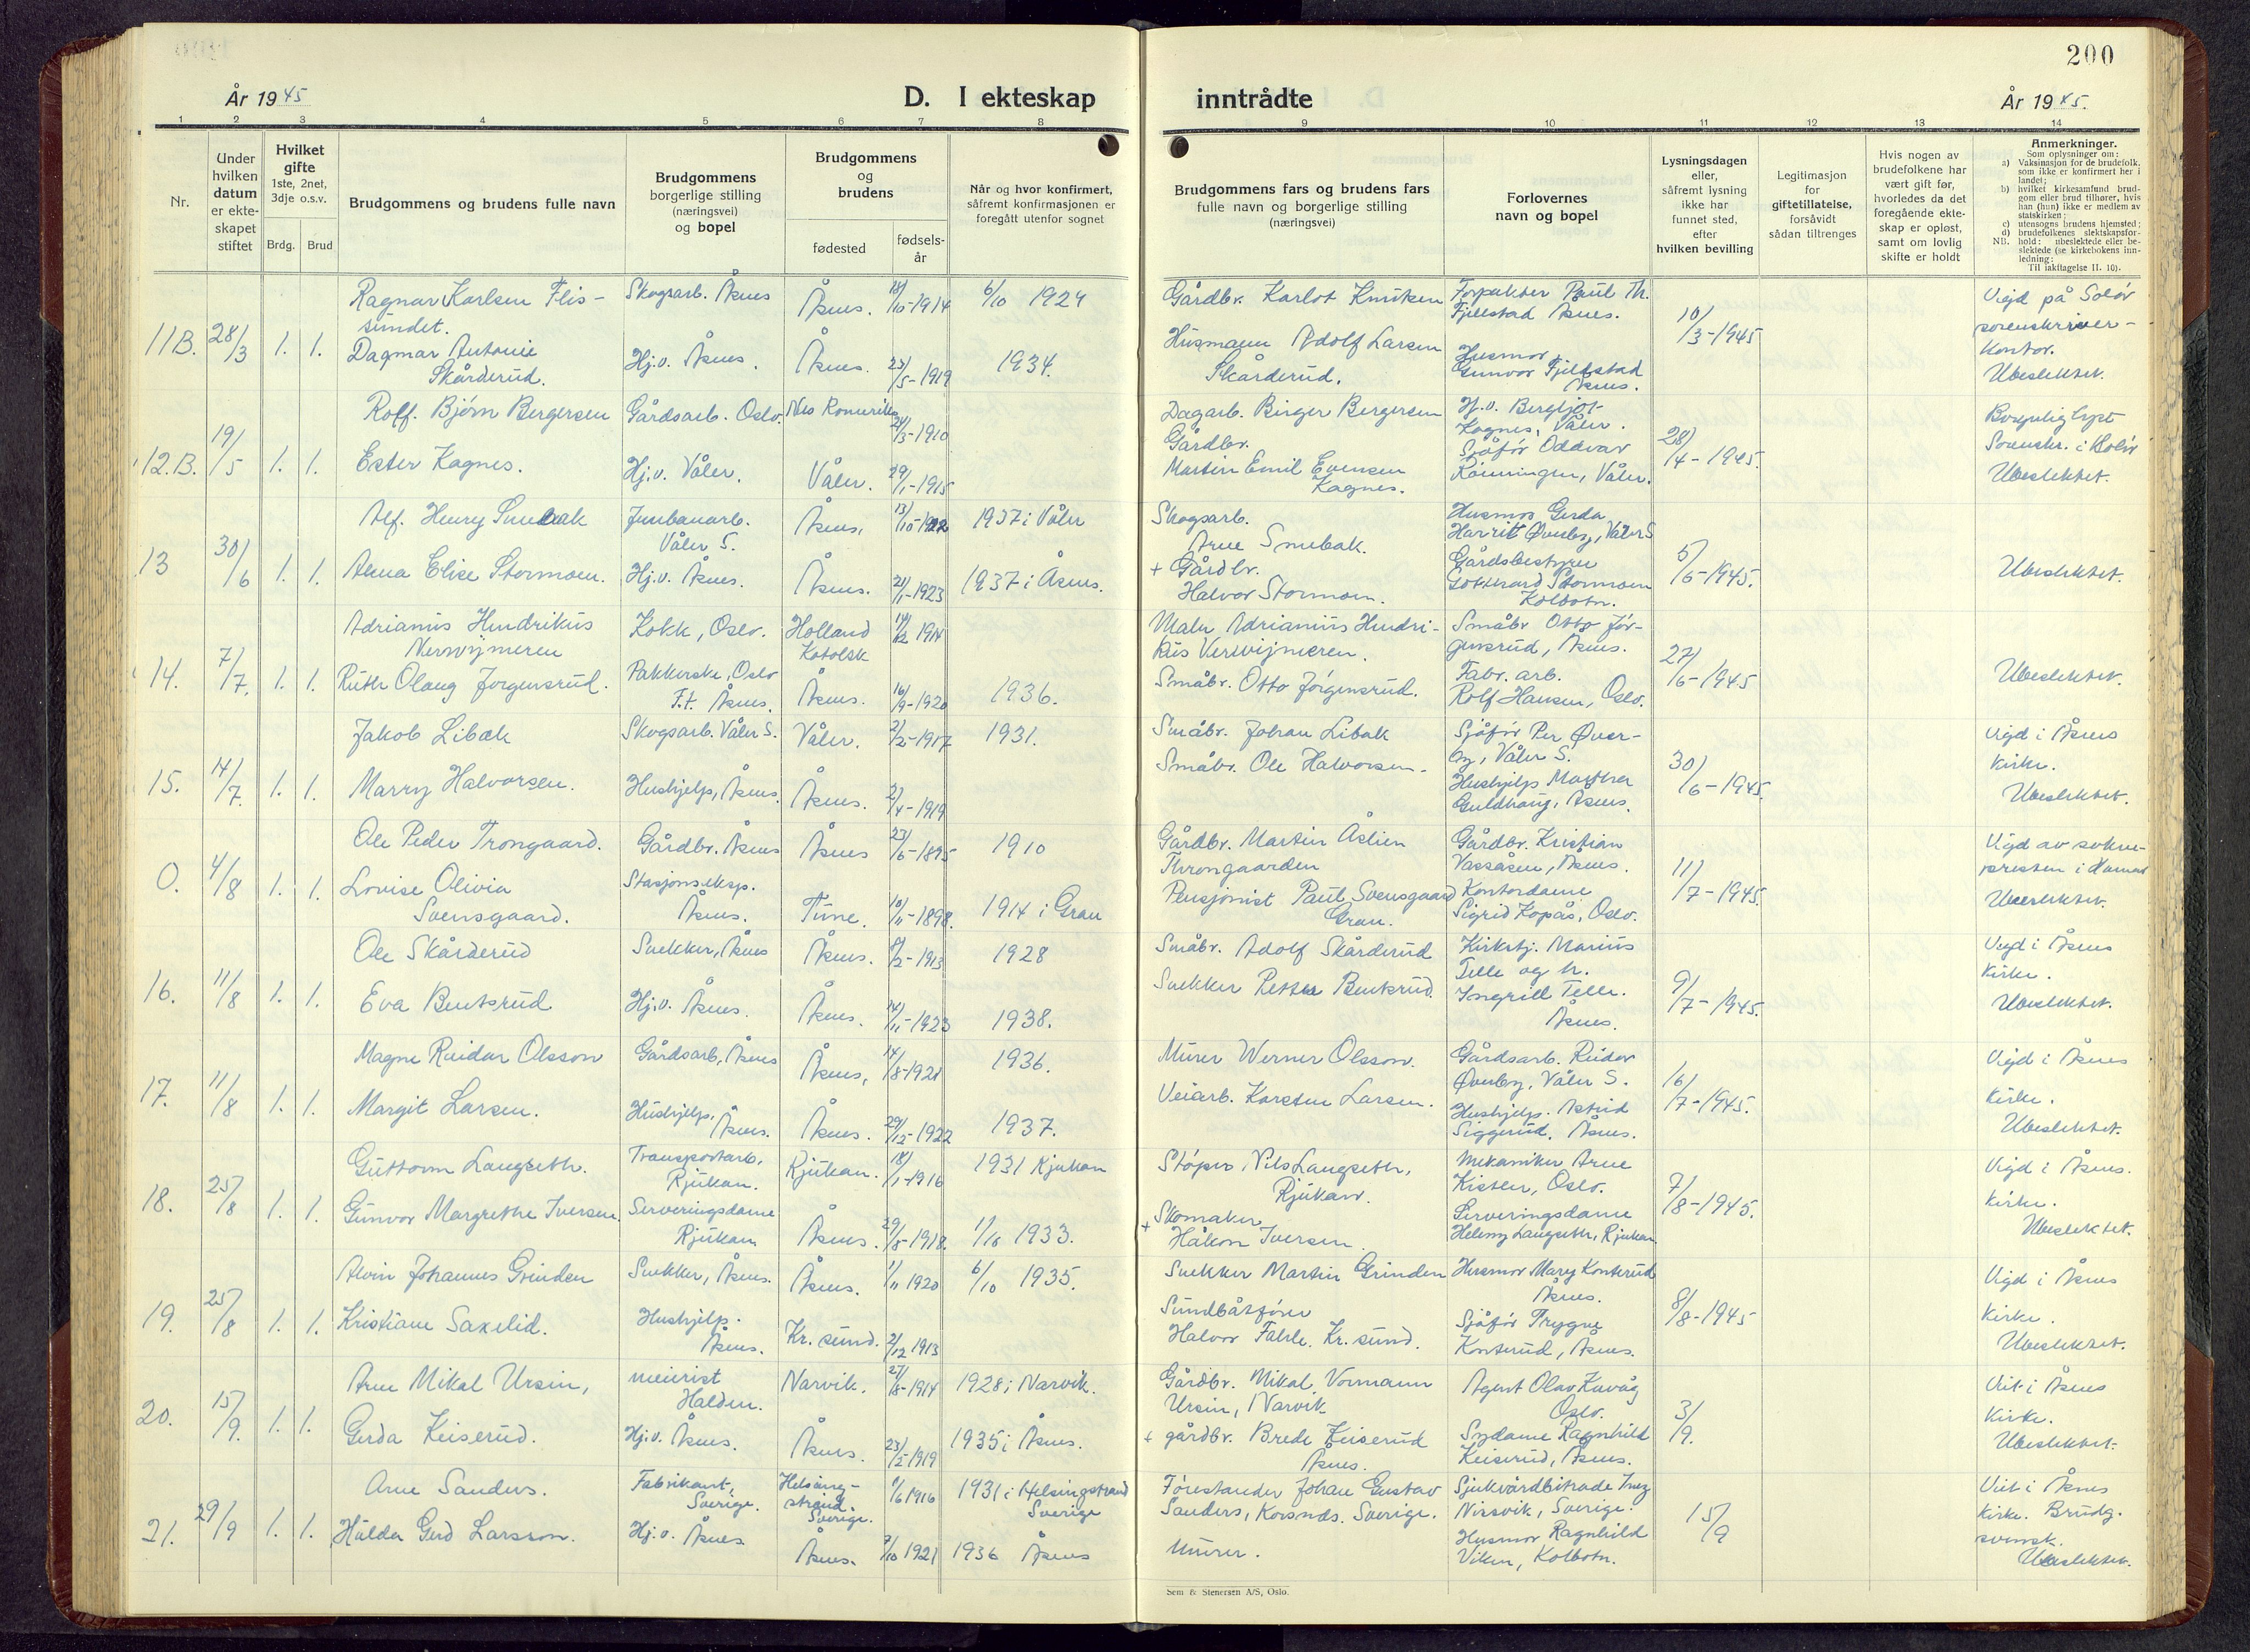 200
År 1945
D. I ekteskap
inntrådte
År 1945.
1 2 3 4 5 6 7 8 9 10 11 12 13 14
Nr.
Under
hvilken
datum
er ekte-
skapet
stiftet
Hvilket
gifte
1ste, 2net,
3dje o.s.v.
Brdg. Brud
Brudgommens og brudens fulle navn
Brudgommens
borgerlige stilling
(næringsvei)
og bopel
Brudgommens
og
brudens
fødested
fødsels-
år
Når og hvor konfirmert,
såfremt konfirmasjonen er
foregått utenfor sognet
Brudgommens fars og brudens fars
fulle navn og borgerlige stilling
(næringsvei)
Forlovernes
navn og bopel
Lysningsdagen
eller,
såfremt lysning
ikke har
funnet sted,
efter
hvilken bevilling
Legitimasjon
for
giftetillatelse,
forsåvidt
sådan tiltrenges
Hvis nogen av
brudefolkene har
vært gift før,
hvorledes da det
foregående ekte-
skap er opløst,
samt om lovlig
skifte er holdt
Anmerkninger.
Som oplysninger om:
a) Vaksinasjon for de brudefolk,
som ikke er konfirmert her i
landet;
b) hvilket kirkesamfund brud-
gom eller brud tilhører, hvis
han (hun) ikke er medlem av
statskirken;
c) utensogns brudens hjemsted;
d) brudefolkenes slektskapsfor-
NB. hold: ubeslektede eller be-
slektede (se kirkebokens inn-
ledning:
Til iakttagelse II. 10).
11B. 28/3 1. 1.
Ragnar Karlsen Flis-
sundet.
Skogsarb. Åsnes
Åsnes. 18/10-1914
6/10 1929
Gårdbr. Karlot Knutsen
Forpakter Paul Th.
Fjellstad Åsnes.
10/3-1945
Vigd på Solør
sorenskriver-
kontor.
Ubeslektet.
Dagmar Antonie
Skårderud.
Hj.v. Åsnes.
Åsnes. 23/5-1919
1934.
Husmann Adolf Larsen
Skårderud.
Husmor
Gunvor Fjellstad
Åsnes.
12.B. 19/5 1. 1.
Rolf. Bjørn Bergersen
Gårdsarb. Oslo.
Nes Romerike
24/3-1910
Dagarb. Birger Bergersen
Hj.v. Bergljot
Kagnes, Våler.
28/4-1945.
Borgerlig
Sorenskr. i Solør
Ubeslektet.
Ester Kagnes.
Hj.v. Våler.
Våler. 29/1-1915
Gårdbr.
Martin Emil Evensen
Kagnes.
Sjåfør Oddvar
Rønningen, Våler.
13 30/6 1. 1.
Alf. Henry Smebak
Jernbanarb.
Våler S.
Åsnes, 13/10-1922
1937 i Våler
Skogsarb.
Arne Smebak.
Husmor Gerda
Harriet Øverby, Våler S
5/6-1945.
Ubeslektet.
Anna Elise Stormoen.
Hj.v. Åsnes.
Åsnes. 21/1-1923
1937 i Åsnes.
+ Gårdbr.
Halvor Stormoen.
Gårdsbestyrer
Gotthard Stormoen
Kolbotn.
14. 7/7. 1. 1.
Adrianus Hendrikus
Verwijmeren
Kokk, Oslo.
Holland
Katolsk
19/12 1914
Maler Adrianus Hendri-
kus Verwijmeren.
Småbr Otto Jør-
gensrud, Åsnes.
27/6-1945
Ubeslektet.
Ruth Olaug Jørgensrud.
Pakkerske, Oslo
F.t. Åsnes.
Åsnes. 16/9-1920
1936.
Småbr. Otto Jørgensrud.
Fabr. arb.
Rolf Hansen, Oslo.
15. 14/7. 1. 1.
Jakob Libæk
Skogsarb. Våler S.
Våler. 2/2-1917
1931.
Småbr. Johan Libæk
Sjåfør Per Øver-
by, Våler S.
30/6-1945.
Vigd i Åsnes
kirke.
Ubeslektet.
Marry Halvorsen.
Hushjelp, Åsnes.
Åsnes. 2/4-1919
Småbr. Ole Halvorsen.
Hushjelp Marthea
Guldhaug, Åsnes.
0. 4/8 1. 1.
Ole Peder Trongaard.
Gårdbr. Åsnes
Åsnes 23/6-1895
1910
Gårdbr. Martin Åslien
Throngaarden
Gårdbr. Kristian
Vassåsen, Åsnes.
11/7-1945.
Vigd av sokne-
presten i Hamar
Ubeslektet.
Lovise Olivia
Svensgaard.
Stasjonseksp.
Åsnes.
Tune. 10/11-1898.
1914 i Gran
Pensjonist Paul Svensgaard
Gran.
Kontordame
Sigrid Kopås, Oslo.
16. 11/8 1. 1.
Ole Skårderud
Snekker, Åsnes
Åsnes. 5/2-1913
1928
Småbr. Adolf Skårderud
Kirketj. Marius
Telle og h.
Ingrill Telle.
Åsnes.
9/7-1945.
Vigd i Åsnes
Kirke.
Ubeslektet.
Eva Bentsrud
Hj.v. Åsnes.
Åsnes. 14/11-1923
1938.
Snekker Petter Bentsrud.
17. 11/8 1. 1.
Magne Reidar Olsson
Gårdsarb, Åsnes
Åsnes, 14/8-1921
1936.
Murer Werner Olsson.
Gårdsarb. Reidar
Øverby, Våler S.
16/7-1945.
Vigd i Åsnes
kirke.
Ubeslektet.
Margit Larsen.
Hushjelp,
Åsnes.
Åsnes. 29/12-1922
1937.
Veiarb. Karsten Larsen.
Hushjelp. Astrid
Siggerud, Åsnes.
18. 25/8 1. 1.
Guttorm Langseth.
Transportarb,
Rjukan.
Rjukan. 18/1-1916
1931 Rjukan
Støper Nils Langseth,
Rjukan.
Mekaniker Arne
Kistler, Oslo.
7/8-1945.
Vigd i Åsnes.
kirke.
Ubeslektet.
Gunvor Margrethe Iversen
Serveringsdame
Rjukan
Åsnes. 29/5-1918.
1/10 1933.
+ Skomaker
Håkon Iversen.
Serveringsdame
Helény Langseth, Rjukan.
19. 25/8 1. 1.
Alvin Johannes Grinden
Snekker, Åsnes.
Åsnes. 1/11 1920
6/10 1935.
Snekker Martin Grinden
Husmor Mary Konterud
Åsnes.
8/8-1945
Vigd i Åsnes
kirke.
Ubeslektet.
Kristiane Saxelid.
Hushjelp.
Åsnes.
Kr. sund. 2/12 1913
Sundbåtfører
Halvor Fahle. Kr. sund.
Sjåfør Trygve
Konterud, Åsnes.
20. 15/9. 1. 1.
Arne Mikal Ursin,
meierist
Halden.
Narvik. 27/8-1914
1928 i Narvik.
Gårdbr. Mikal Normann
Ursin, Narvik
Agent Olav Kuvåg
Oslo.
3/9.
Viet i Åsnes
Kirke.
Ubeslektet.
Gerda Keiserud.
Hj.v. Åsnes.
Åsnes. 23/2-1919
1935 i Åsnes.
+ gårdbr. Brede Keiserud
Åsnes.
Sydame Ragnhild
Keiserud, Åsnes.
21. 29/9 1. 1.
Arne Sanders.
Fabrikant,
Sverige.
Helsing-
strand.
Sverige.
9/6 1916
1931 i Helsingstrand
Sverige
Førestander Johan Gustav
Sanders, Korsnäs. Sverige.
Sjukvårdbitrade Inez
Nissvik, Sverige.
15/9
Viet i Åsnes
kirke. Brudg.
svensk.
Ubeslektet.
Hulda Gerd Larsson.
Hj.v. Åsnes
Åsnes. 3/10 1921
1936 Åsnes
Murer.
Husmor Ragnhild
Viken, Kolbotn.
Sem & Stenersen A/S, Oslo.